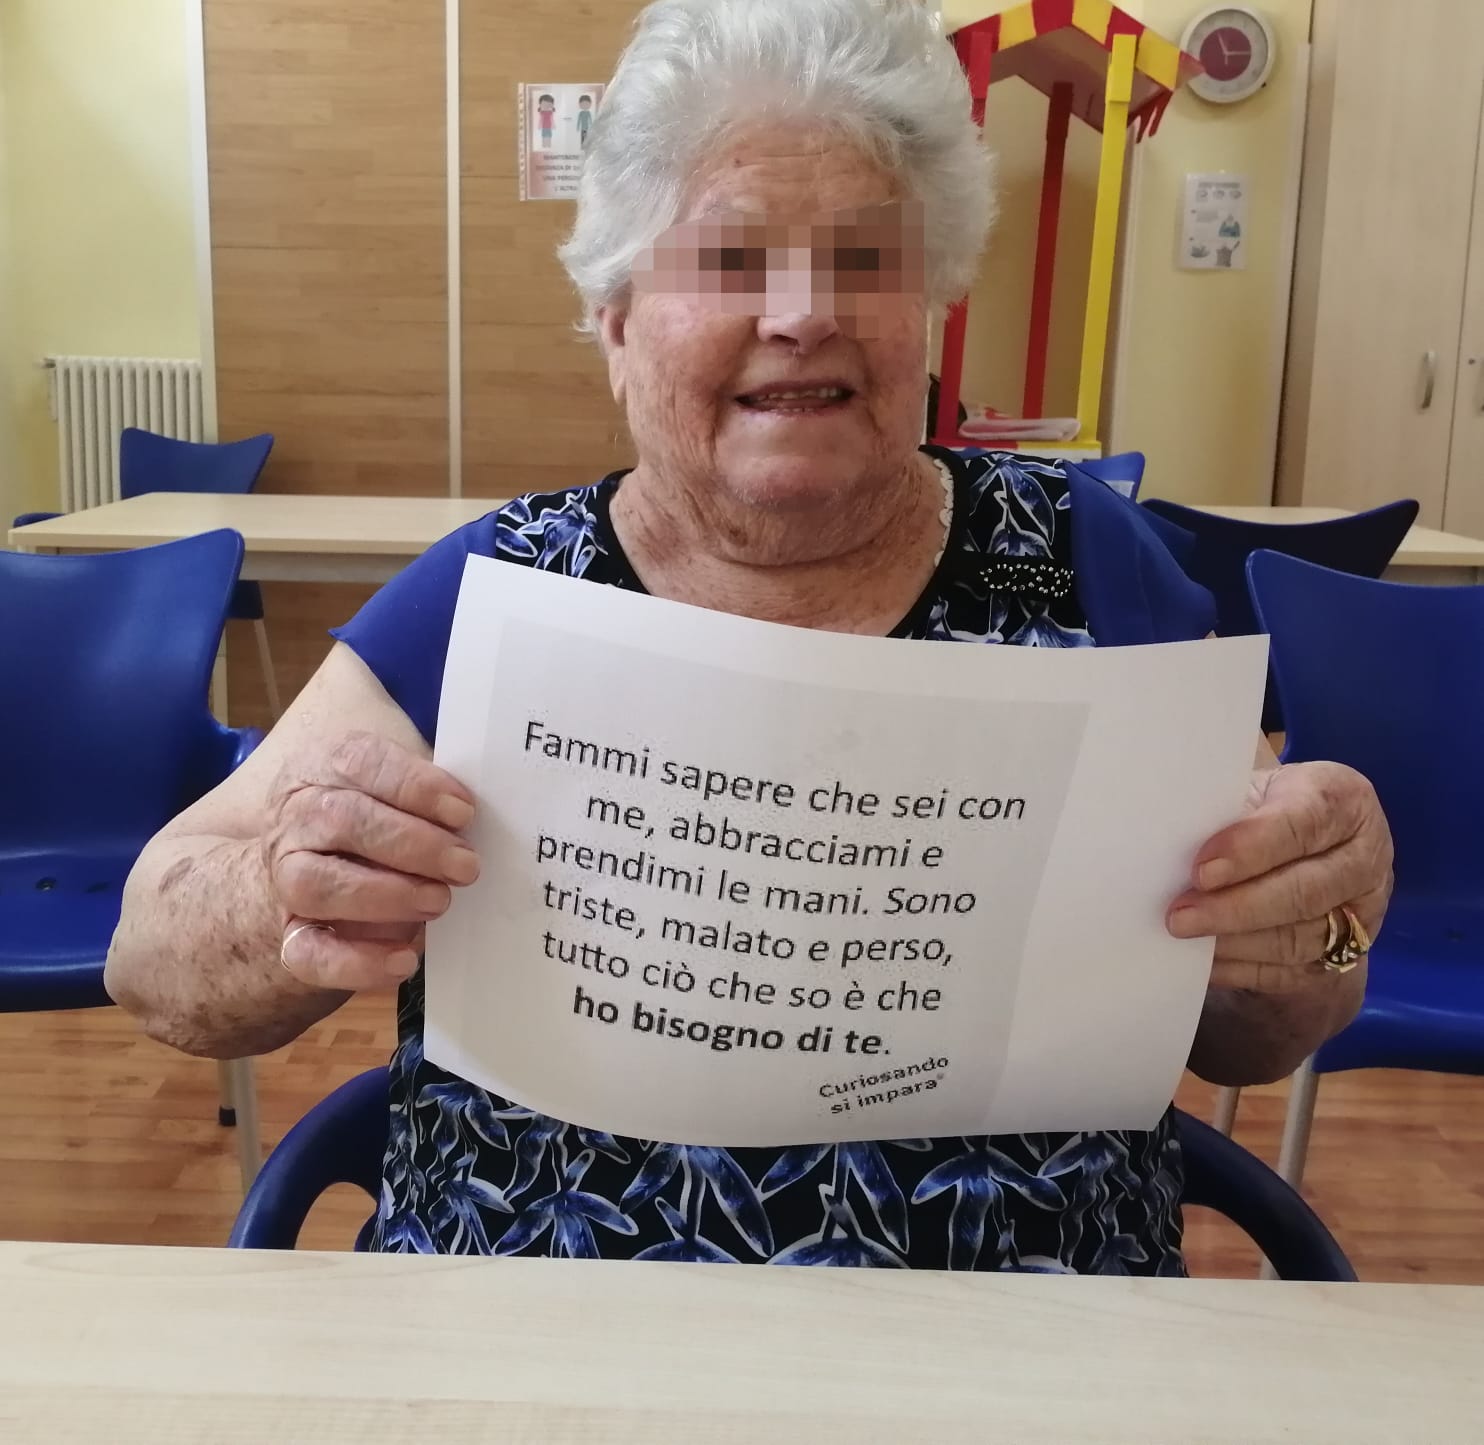 MANTENERE
UNA PERSONA
L'ALTRA
Fammi sapere che sei con
me, abbracciami e
prendimi le mani. Sono
triste, malato e perso,
tutto ciò che so è che
ho bisogno di te.
Curiosando
si impara®